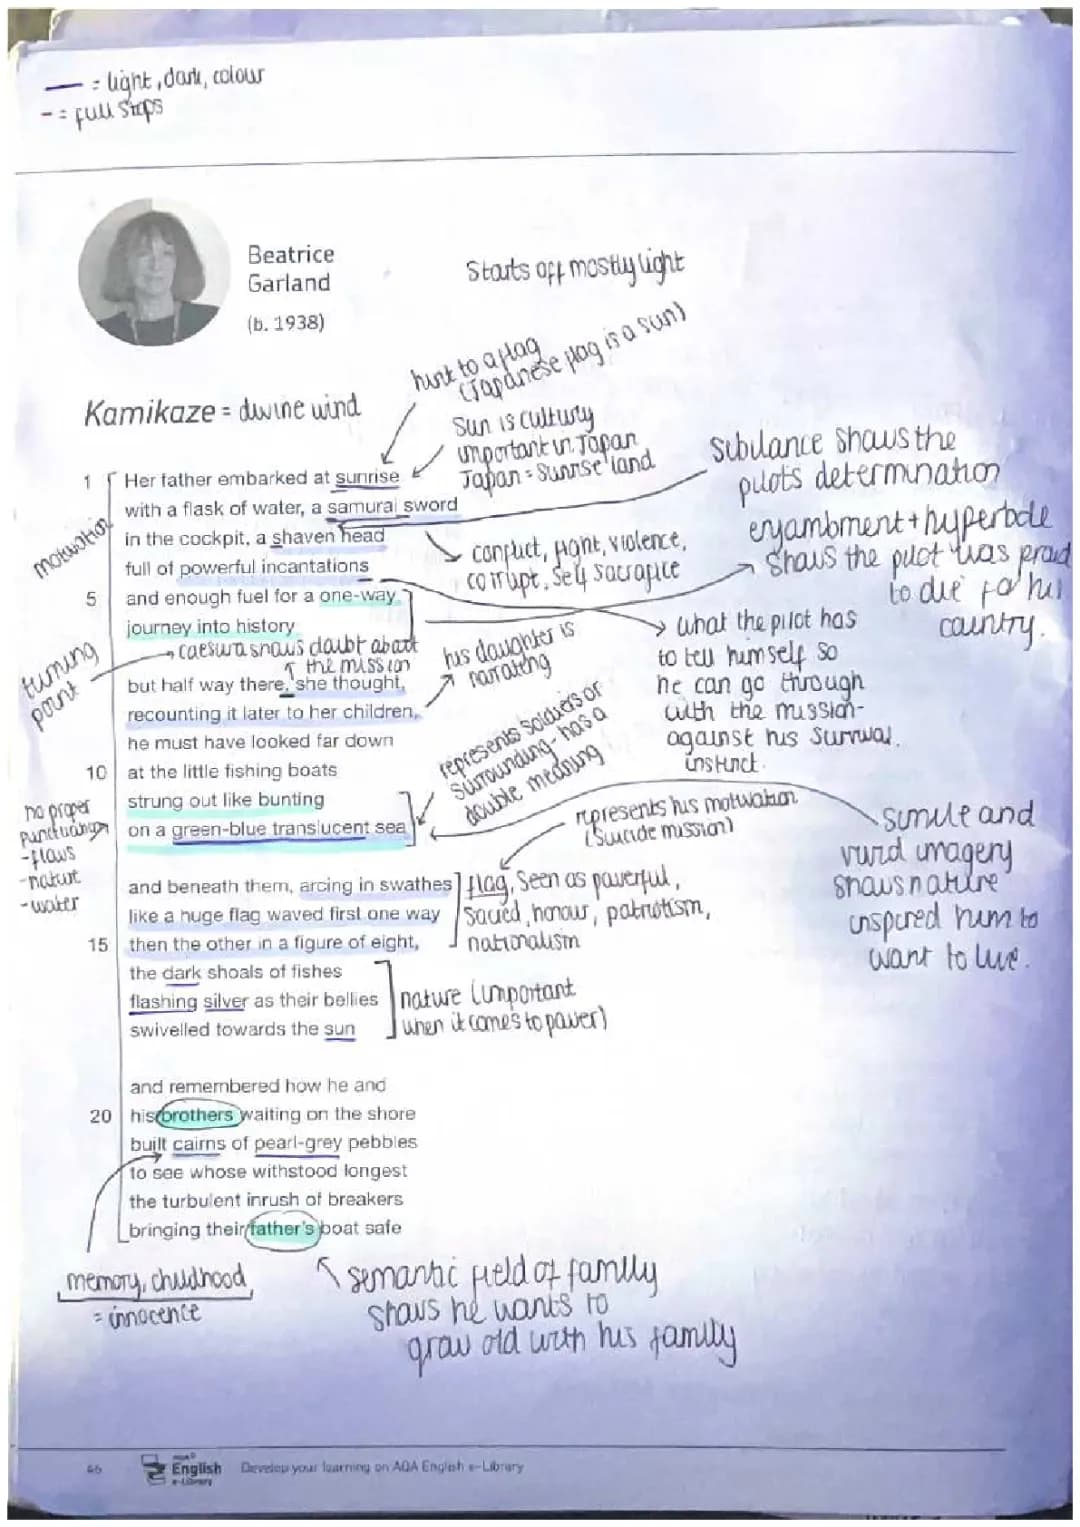 — = light, dark, colour
- = full stops
Beatrice
Garland
(b. 1938)
Starts off mostly light
hint to a flag
(Japanese flag is a sun)
Kamikaze = divine wind
Sun is culturly
important in Japan
Japan = Sunrise land
sibilance shows the
pilots determination
1 Her father embarked at sunrise
with a flask of water, a samurai sword
in the cockpit, a shaven head
full of powerful incantations
5 and enough fuel for a one-way
journey into history
motivation
conflict, fight, violence,
corrupt, self sacrafice
enjambment + hyperbole
shows the pilot was proud
to die for his
country.
turning
point
caesura shows doubt about
the mission
his daughter is
narrating
what the pilot has
to tell himself so
he can go through
with the mission-
against his survival
instinct.
but half way there, she thought,
recounting it later to her children,
he must have looked far down
10 at the little fishing boats
strung out like bunting
on a green-blue translucent sea
represents soldiers or
surrounding - has a
double meaning
no proper
punctuation
-flows
-nature
-water
represents his motivation
(Suicide mission)
simile and
vivid imagery
shows nature
inspired him to
want to live.
and beneath them, arcing in swathes
like a huge flag waved first one way
15 then the other in a figure of eight,
the dark shoals of fishes
flashing silver as their bellies
swivelled towards the sun
flag, Seen as powerful,
sacred, honour, patriotism,
nationalism
nature (important
when it comes to power)
and remembered how he and
20 his brothers waiting on the shore
built cairns of pearl-grey pebbles
to see whose withstood longest
the turbulent inrush of breakers
bringing their father's boat safe
memory, childhood
= innocence
semantic field of family
shows he wants to
grow old with his family
46
AQA
English
e-Library
Develop your learning on AQA English e-Library